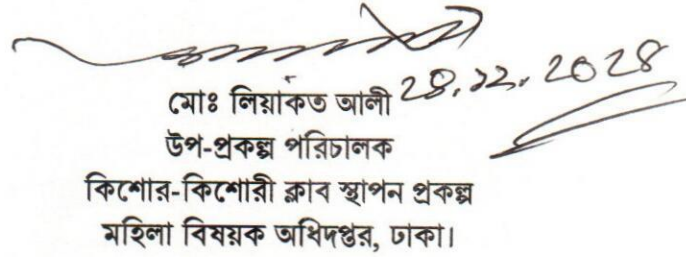 মোঃ লিয়াকত আলী ২৪.১২.২০২৪
উপ-প্রকল্প পরিচালক
কিশোর-কিশোরী ক্লাব স্থাপন প্রকল্প
মহিলা বিষয়ক অধিদপ্তর, ঢাকা।